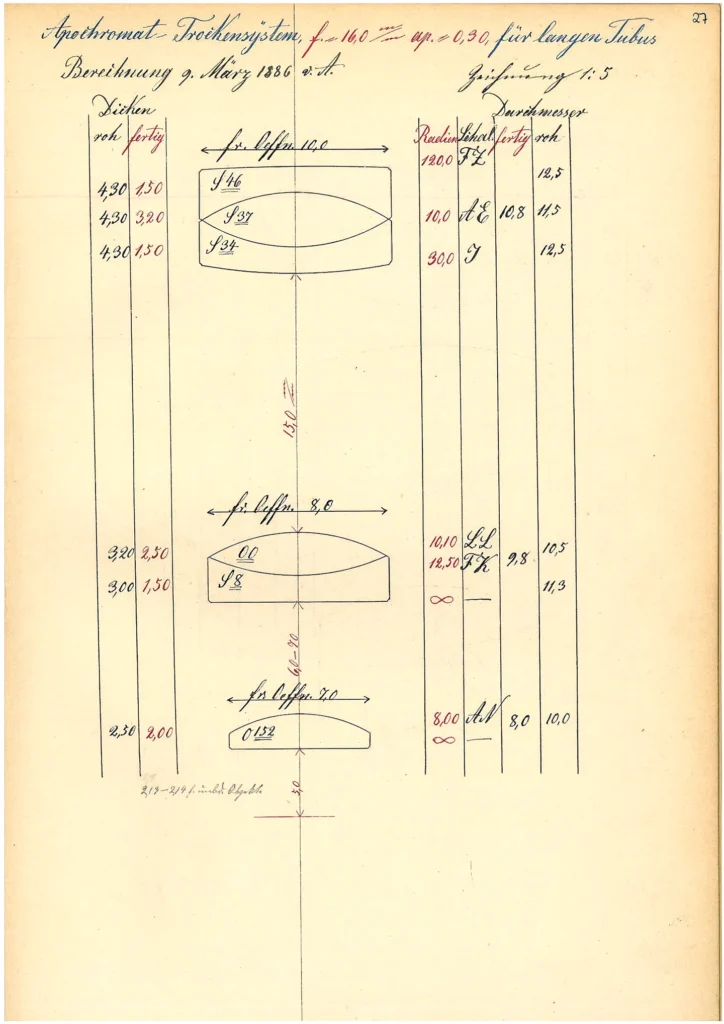 27
Apochromat-Trockensystem, f. = 16,0 m/m ap. = 0,30, für langen Tubus
Berechnung 9. März 1886 v. A. Zeichnung 1:5
Dicken Durchmesser
roh fertig fr. Oeffn. 10,0 Radien Schal. fertig roh
120,0 FZ
4,30 1,50 S 46 12,5
4,30 3,20 S 37 10,0 AE 10,8 11,5
4,30 1,50 S 34 30,0 J 12,5
15,0 m/m
fr. Oeffn. 8,0
3,20 2,50 OO 10,10 LL 9,8 10,5
12,50 FK
3,00 1,50 S 8 11,3
∞ —
6,0-70
fr. Oeffn. 7,0
2,50 2,00 O 152 8,00 AN 8,0 10,0
∞ —
5,0